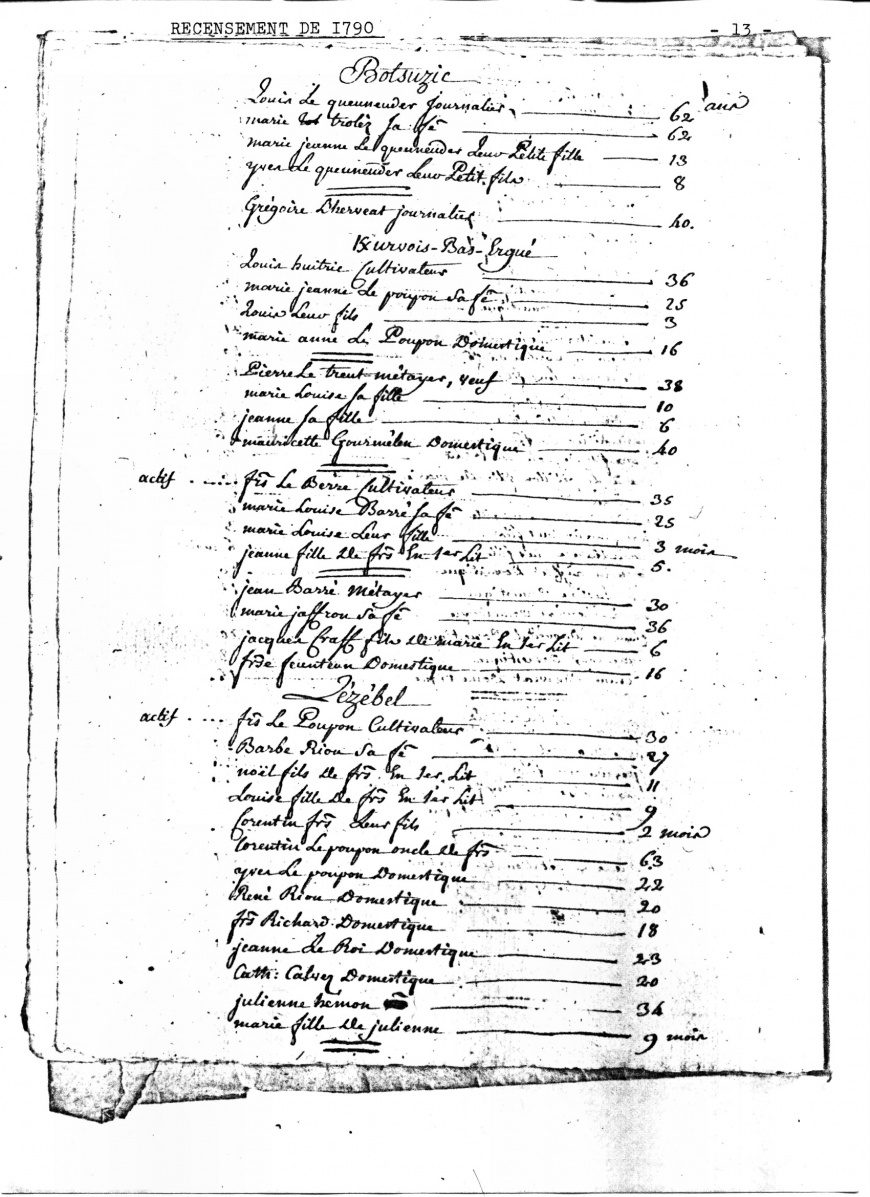 RECENSEMENT DE I790 - 13 -
Botsuzic
Louis Le queunender journalier 62 ans
marie trolez sa fê 62
marie jeanne Le queunender Leur Petite fille 13
yves Le queunender Leur Petit fils 8
Grégoire Lherveat journalier 40.
Kurvois-Bas-Ergué
Louis huitric Cultivateur 36
marie jeanne Le poupon sa fê 25
Louis Leur fils 3
marie anne Le Poupon Domestique 16
Pierre Le treut métayer, veuf 38
marie Louise sa fille 10
jeanne sa fille 6
mauricette Gourmélen Domestique 40
actif frs̃ Le Berre Cultivateur 35
marie Louise Barré sa fê 25
marie Louise Leur fille 3 mois
jeanne fille de frs̃ En 1er Lit 5.
jean Barré Métayer 30
marie jaffron sa fê 36
jacques Craff fils de marie En 1er Lit 6
frse feunteun Domestique 16
Lézébel
actif frs̃ Le Poupon Cultivateur 30
Barbe Riou sa fê 27
noël fils de frs̃ En 1er Lit 11
Louise fille de frs̃ En 1er Lit 9
Corentin frs̃ Leur fils 2 mois
Corentin Le poupon oncle de frs̃ 63
yves Le poupon Domestique 22
René Riou Domestique 20
frs̃ Richard Domestique 18
jeanne Le Roi Domestique 23
Cath: Calvez Domestique 20
julienne hémon 34
marie fille de julienne 9 mois